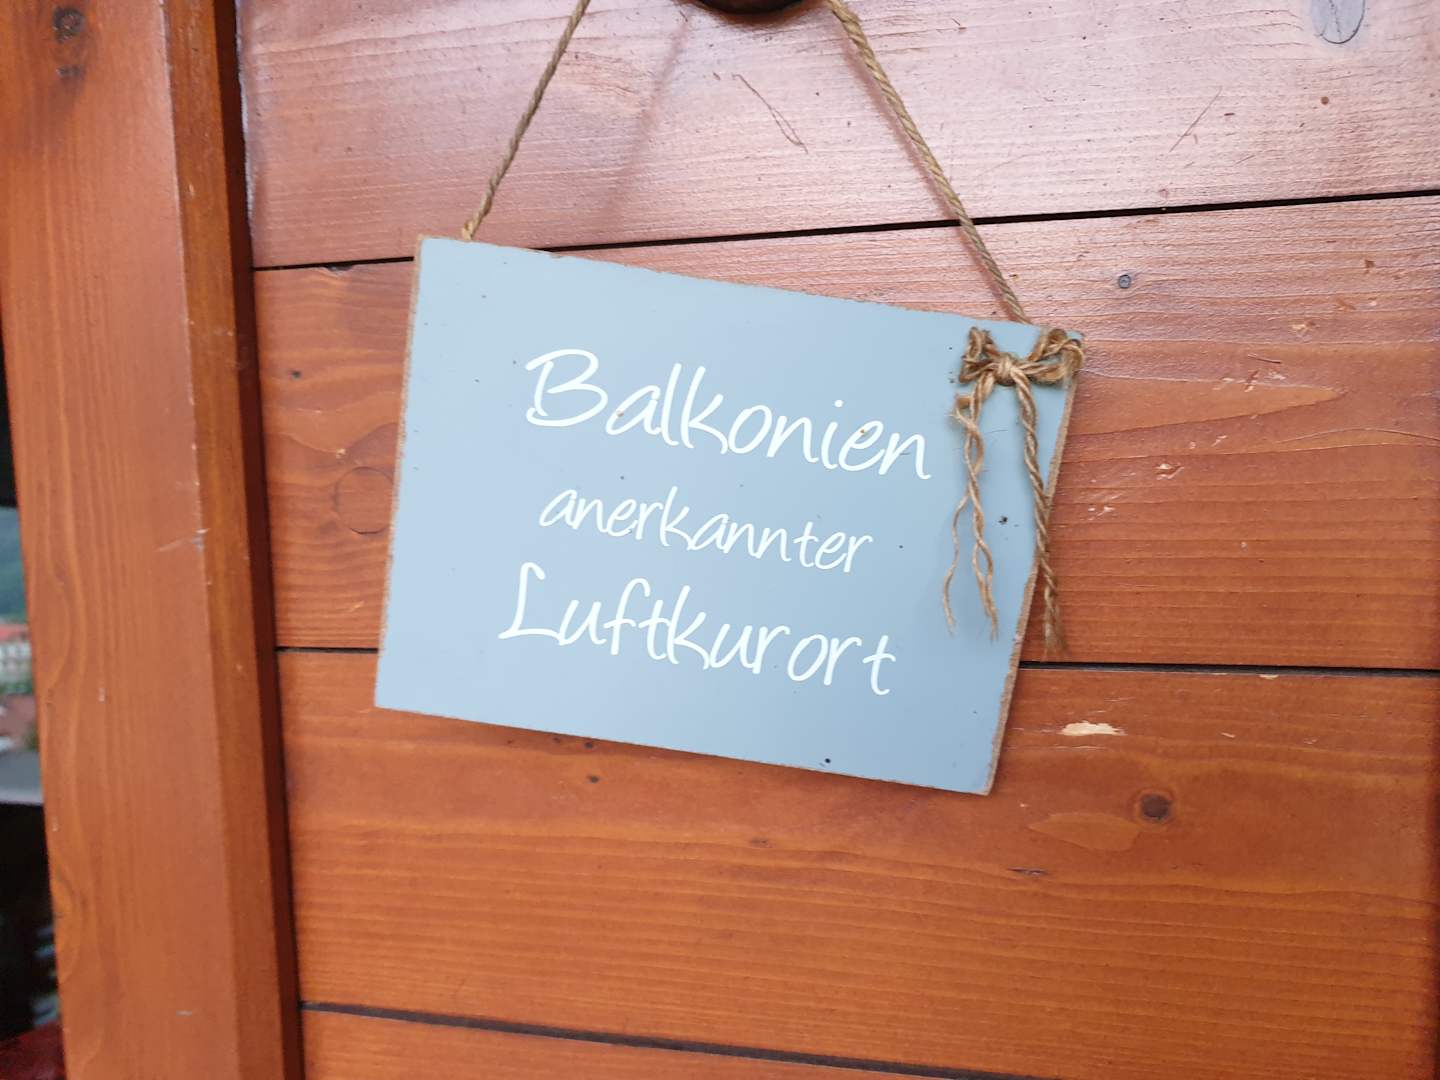 Balkonien
anerkannter
Luftkurort